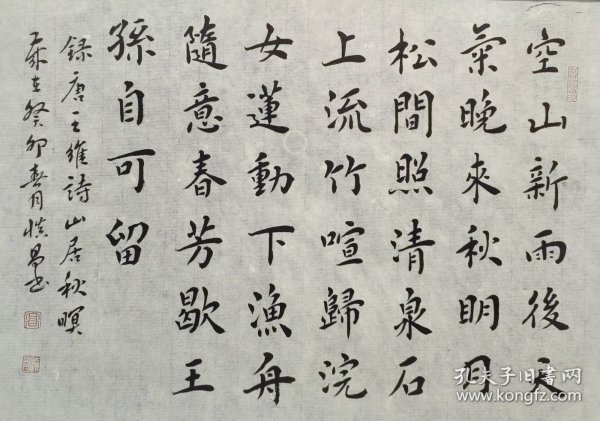 空山新雨後天
氣晚來秋明月
松間照清泉石
上流竹喧歸浣
女蓮動下漁舟
隨意春芳歇王
孫自可留
錄唐王維詩山居秋暝
歲在癸卯春月慎昌書
孔夫子旧書网
www.kongfz.com